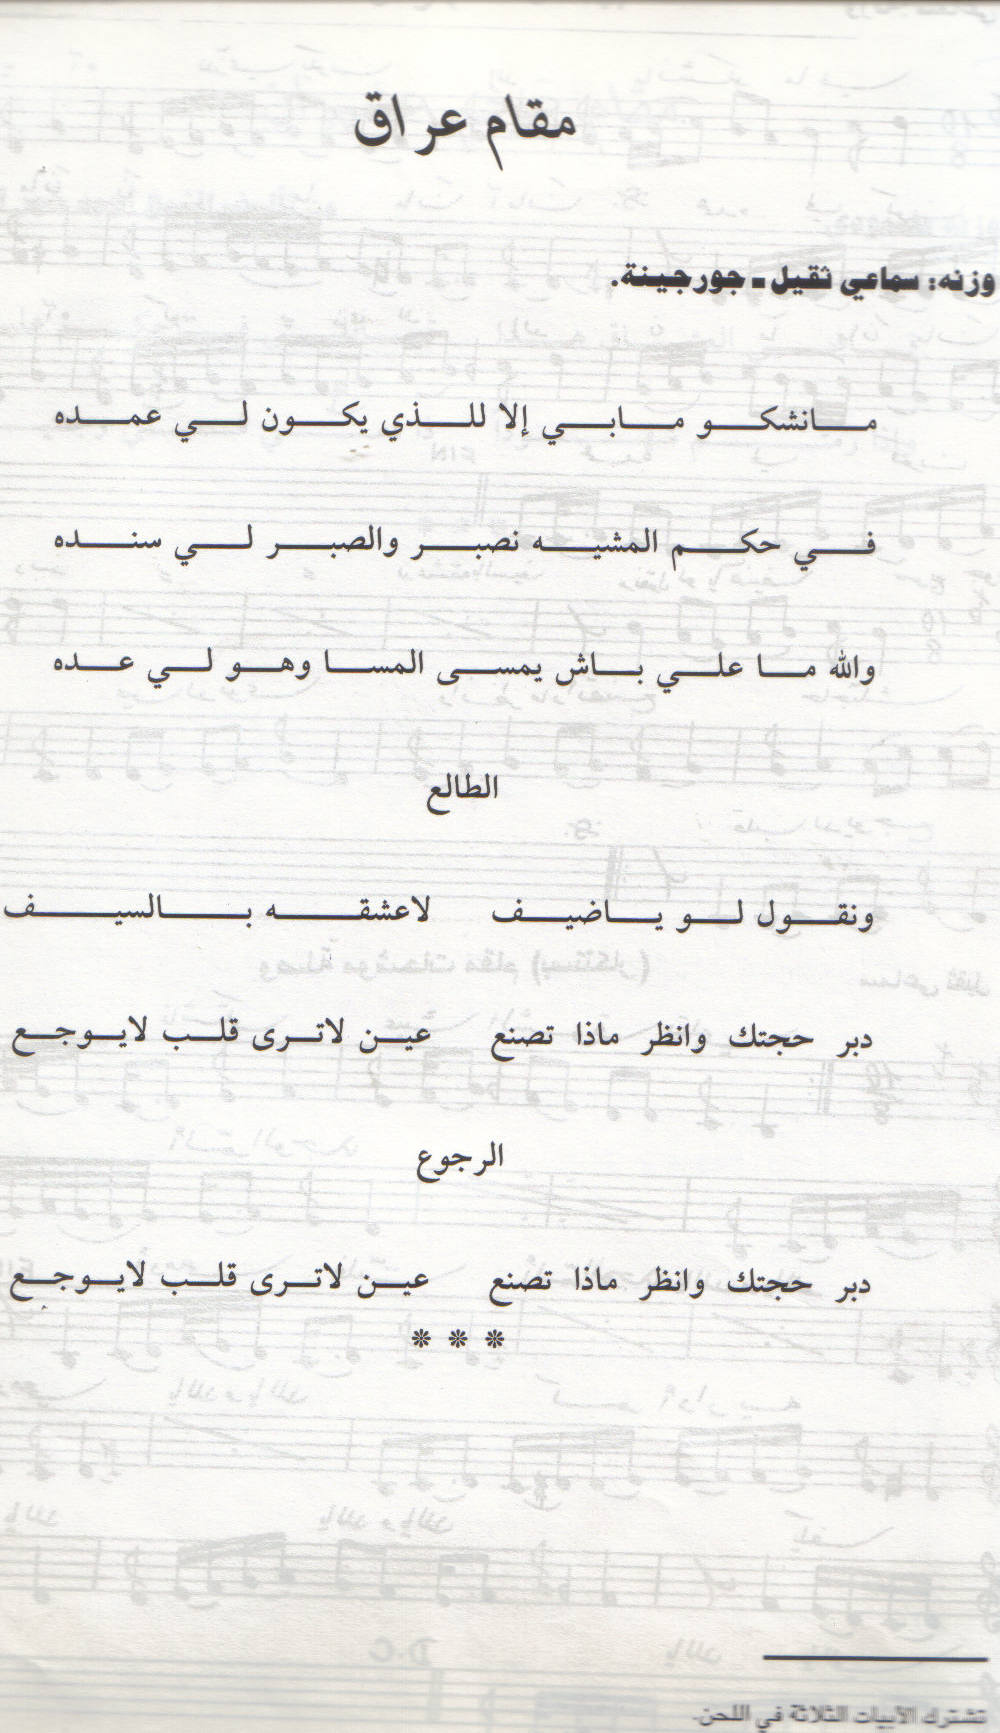 مقام عراق
وزنه: سماعي ثقيل - جورجينة.
مانشكو مابي إلا للذي يكون لي عمده
في حكم المشيه نصبر والصبر لي سنده
والله ما علي باش يمسى المسا وهو لي عده
الطالع
ونقول لو ياضيف لاعشقه بالسيف
دبر حجتك وانظر ماذا تصنع عين لاترى قلب لايوجع
الرجوع
دبر حجتك وانظر ماذا تصنع عين لاترى قلب لايوجع
* * *
تشترك الأبيات الثلاثة في اللحن.